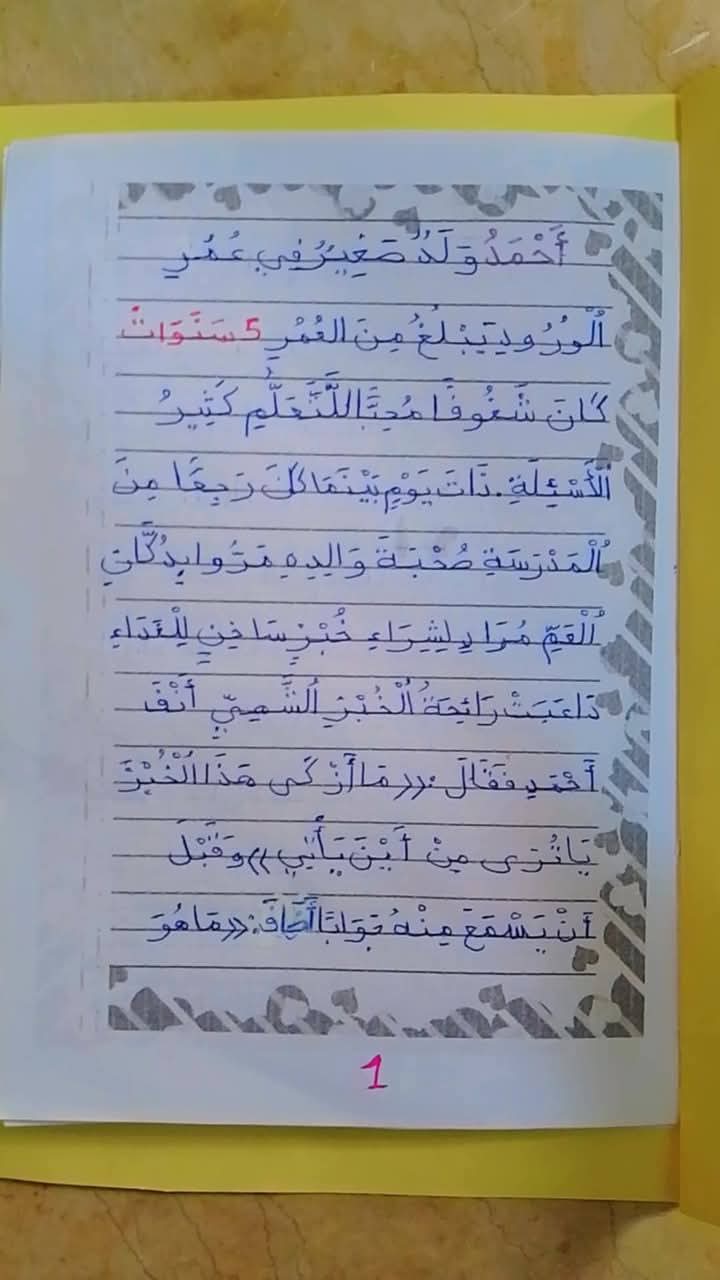 أَحْمَدُ وَلَدٌ صَغِيرٌ فِي عُمُرِ
اُلْوُرُودِ يَبْلُغُ مِنَ الْعُمُرِ 5 سَنَوَاتٌ
كَانَ شَغُوفًا مُحِبًّا للتَّعَلُّمِ كَثِيرُ
اُلْأَسْئِلَةِ. ذَاتَ يَوْمٍ بَيْنَمَا كَانَ رَجِعًا مِنَ
اُلْمَدْرَسَةِ صُحْبَةَ وَالِدِهِ مَرُّوا بِدُكَّانِ
اُلْعَمِّ مُرَادٍ لِشِرَاءِ خُبْزٍ سَاخِنٍ لِلْغَدَاءِ
دَاعَبَتْ رَائِحَةُ اُلْخُبْزِ اُلشَّهِيِّ أَنْفَ
أَحْمَدٍ فَقَالَ :«مَا أَزْكَى هَذَا اُلْخُبْزَ
يَا تُرَى مِنْ أَيْنَ يَأْتِي» وَقَبْلَ
أَنْ يَسْمَعَ مِنْهُ جَوَابًا أَضَافَ :«مَا هُوَ
1